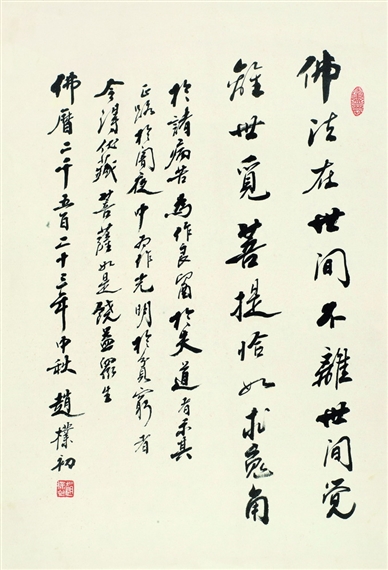 佛法在世间不離世间觉
離世覓菩提恰如求兔角
於諸病苦為作良醫於失道者示其
正路於闇夜中为作光明於貧窮者
令得伏藏菩薩如是饒益眾生
佛曆二千五百二十三年中秋趙樸初